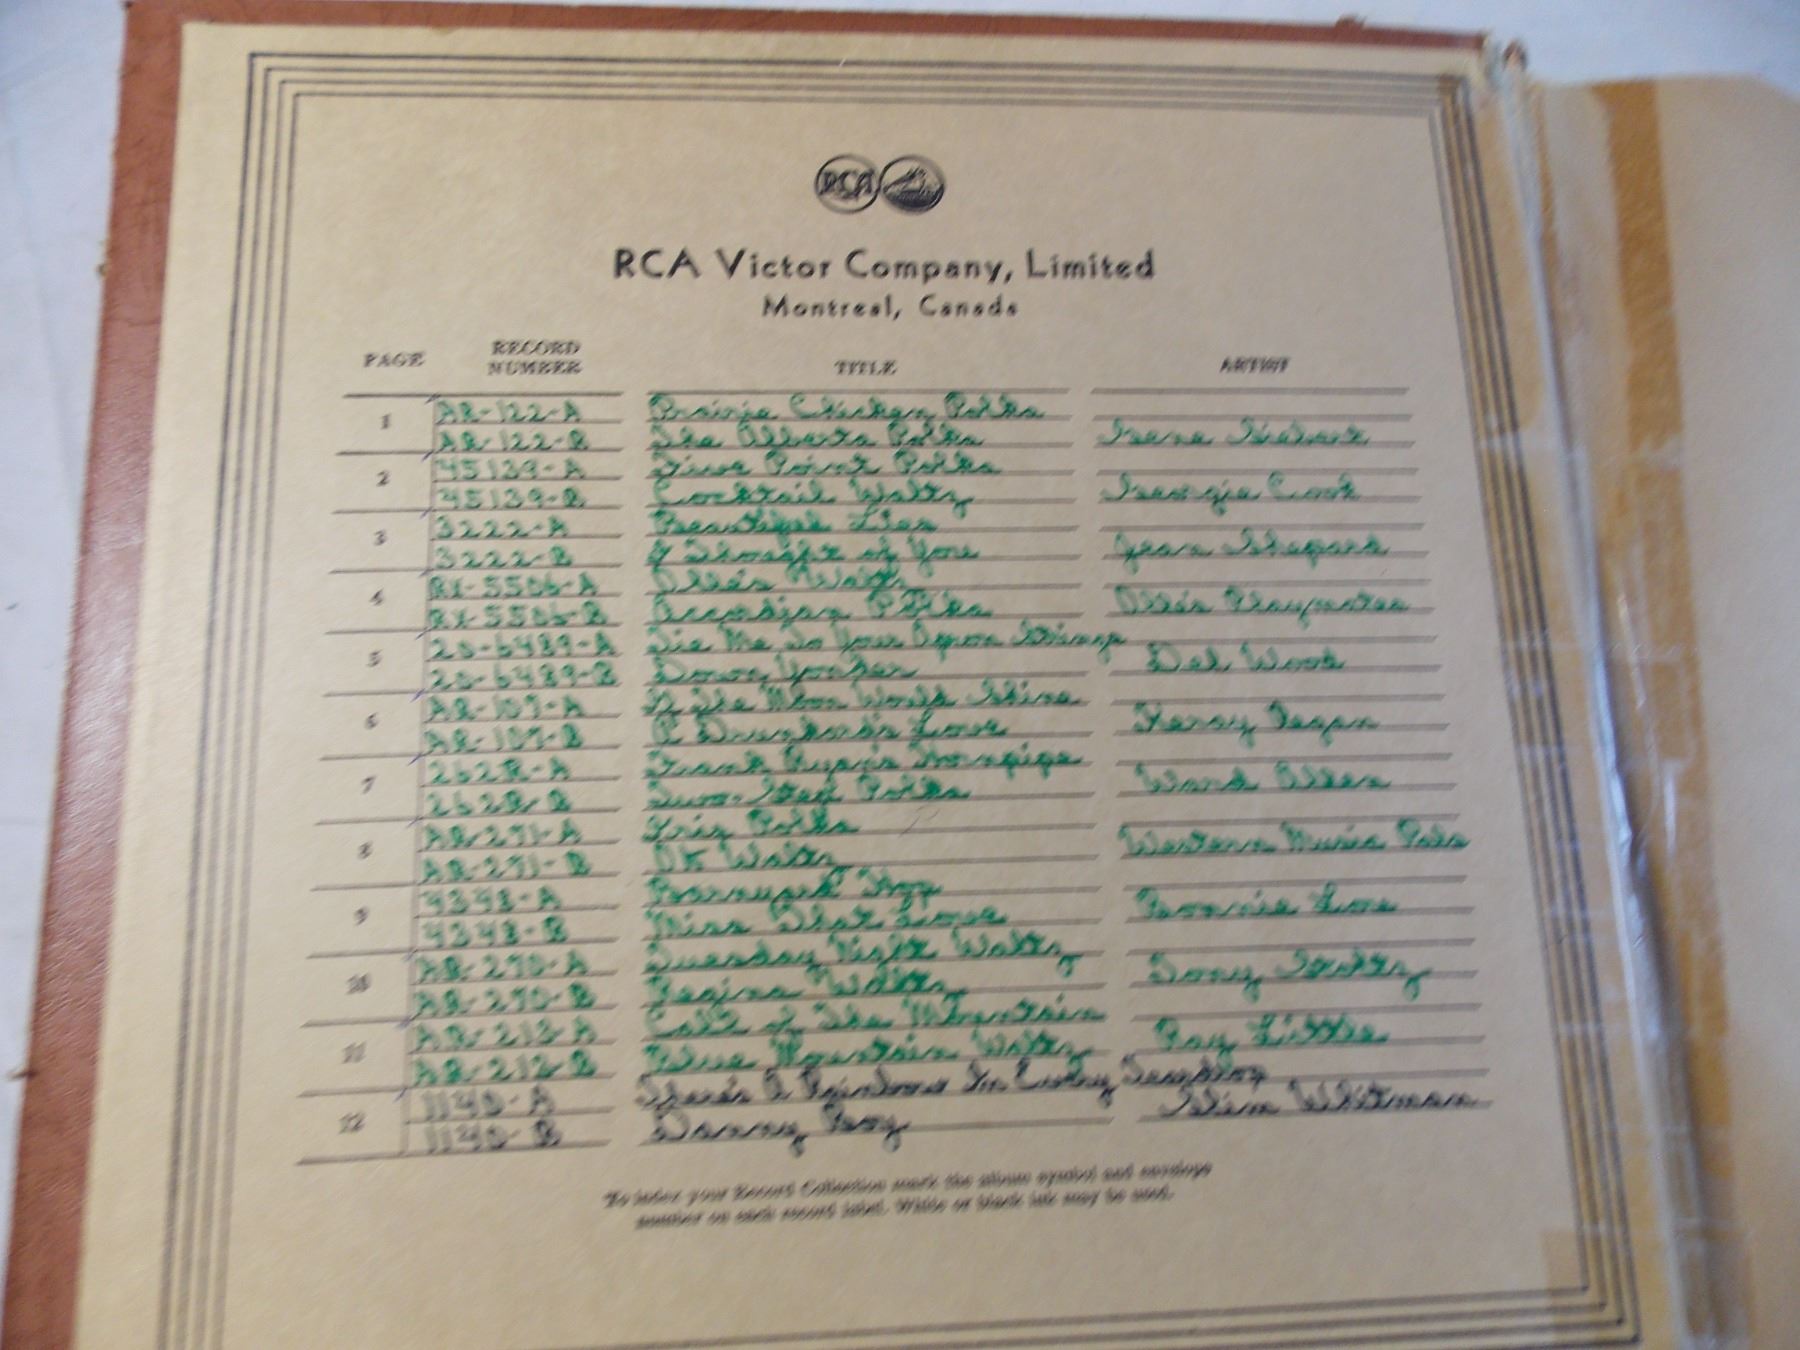 RCA
RCA Victor Company, Limited
Montreal, Canada
PAGE RECORD NUMBER TITLE ARTIST
1 AR-122-A Prairie Chicken Polka
AR-122-B The Alberta Polka
2 45139-A Five Point Polka
45139-B Cocktail Waltz Georgie Cook
3 3222-A Beautiful Lies
3222-B I Thought of You Jean Shepard
4 RX-5506-A Olle's Waltz
RX-5506-B Accordian Polka Olle's Playmates
5 20-6489-A Tie Me To Your Apron Strings
20-6489-B Down Yonder Del Wood
6 AR-107-A If The Moon Would Shine
AR-107-B A Drunkard's Love
7 262R-A Frank Ryan's Hornpipe
262R-B Two-Step Polka Ward Allen
8 AR-271-A Polka
AR-271-B Waltz Western Music Pals
9 4348-A Hop
4348-B Miss That Lives
10 AR-270-A Tuesday Night Waltz
AR-270-B Regina Waltz Tony
11 AR-212-A Call of The Mountain
AR-212-B Blue Mountain Waltz Ray Little
12 1140-A There's A Rainbow In Every Teardrop
1140-B Danny Boy Slim Whitman
To index your Record Collection mark the album symbol and envelope
number on each record label. White or black ink may be used.